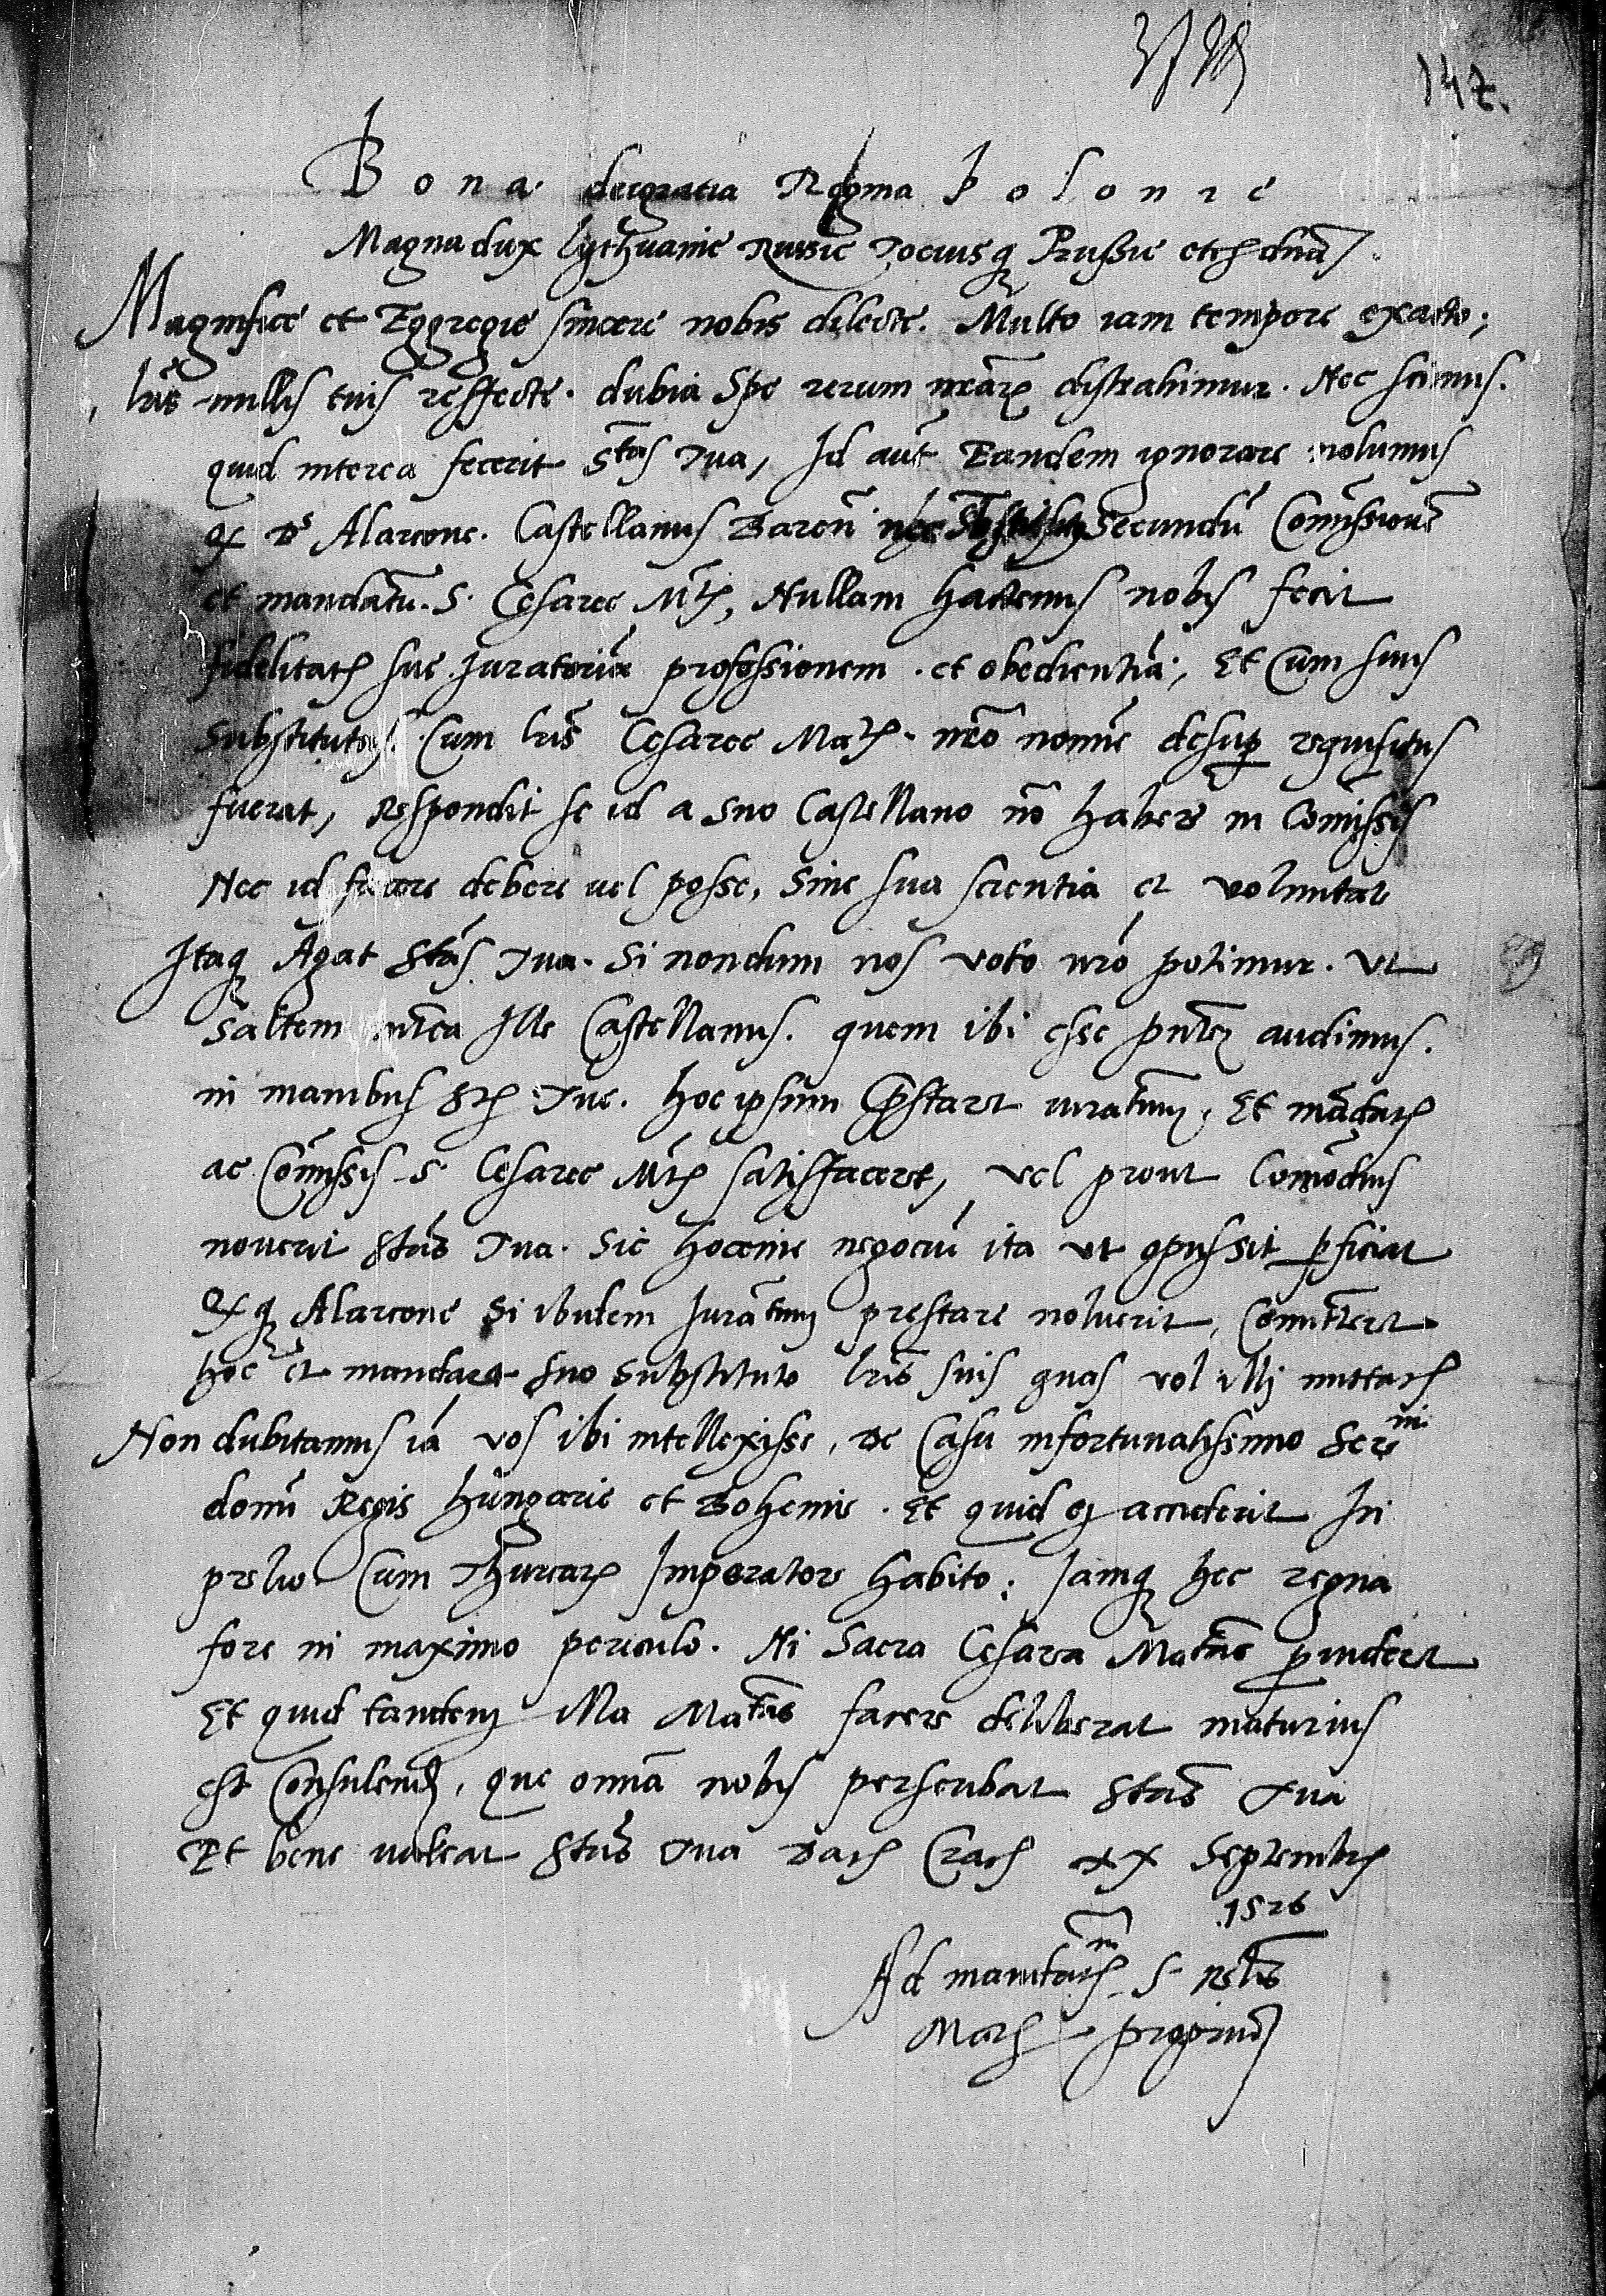 147.
Bona dei gratia Regina Polonie
Magna dux Lythuanie Russie Tociusq Prussie etc dna
Magnifice et Eggregie sincere nobis dilecte. Multo iam tempore exacto;
lris nullis tuis reffecte. dubia spe rerum nrarz distrahimur. Nec scimus.
quid interea fecerit Stas Tua, Id aut Eandem ignorare nolumus
q Ds Alarcone. Castellanus Baren nec Secundu Comissione
et mandatu. S. Cesaree Mtis, Nullam hactenus nobis fecit
fidelitatis sue Juratoria professionem. et obedientia; Et Cum suus
Substitutus. Cum lris Cesaree Matis. nro nomine desup requisitus
fuerat, Respondit se id a suo Castellano no habere in Comissis
Nec id facere debere vel posse, Sine sua scientia et voluntate
Itaq Agat Stas Tua. Si nondum nos voto nro potimur. Ut
Saltem intea Ille Castellanus. quem ibi esse pntez audimus.
in manibus Stis Tue. hoc ipsum Prestaret iuratum, Et madatis
ac Comissis S. Cesaree Mtis satisfaceret, vel prout Comodius
noverit Stas Tua. Sic hocenie negociu ita ut opus sit pficiat
Qq Alarcone Si ibidem Juratum prestare noluerit, Comitteret
hoc et mandaret suo Substituto lris suis quas vel illi mittatis
Non dubitamus ia vos ibi intellexisse, De Casu infortunatissimo Sereni
domi Regis Hungarie et Bohemie. Et quid ei acciderit In
prelio Cum Thurcarz Imperatore habito; Jamq hec regna
fore in maximo periculo. Ni Sacra Cesarea Matas pvideret
Et quid tandem Illa Matas facere deliberat maturius
est Consulend, que omnia nobis perscribat Stas Tua
Et bene valeat Stas Tua Datis Cracis XX Septembris
.1526
Ad mandatum S. Relis
Matis proprium